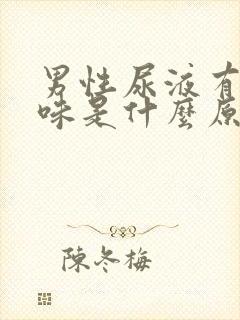 男性尿液有
味是什麼原
陳冬梅